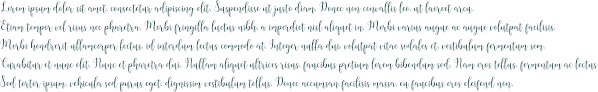 Lorem ipsum dolor sit amet, consectetur adipiscing elit. Suspendisse ut justo diam. Donec non convallis leo, ut laoreet arcu.
Etiam tempor vel risus nec pharetra. Morbi fringilla luctus nibh, a imperdiet nisl aliquet in. Morbi varius augue ac augue volutpat facilisis.
Morbi hendrerit ullamcorper lectus, id interdum lectus commodo at. Integer nulla dui, volutpat vitae sodales et, vestibulum fermentum sem.
Curabitur et nunc elit. Nunc et pharetra dui. Nullam aliquet ultrices risus, faucibus pretium lorem bibendum sed. Nam eros tellus, fermentum ac lectus
Sed tortor ipsum, vehicula sed purus eget, dignissim vestibulum tellus. Donec accumsan facilisis massa, eu faucibus eros eleifend non.